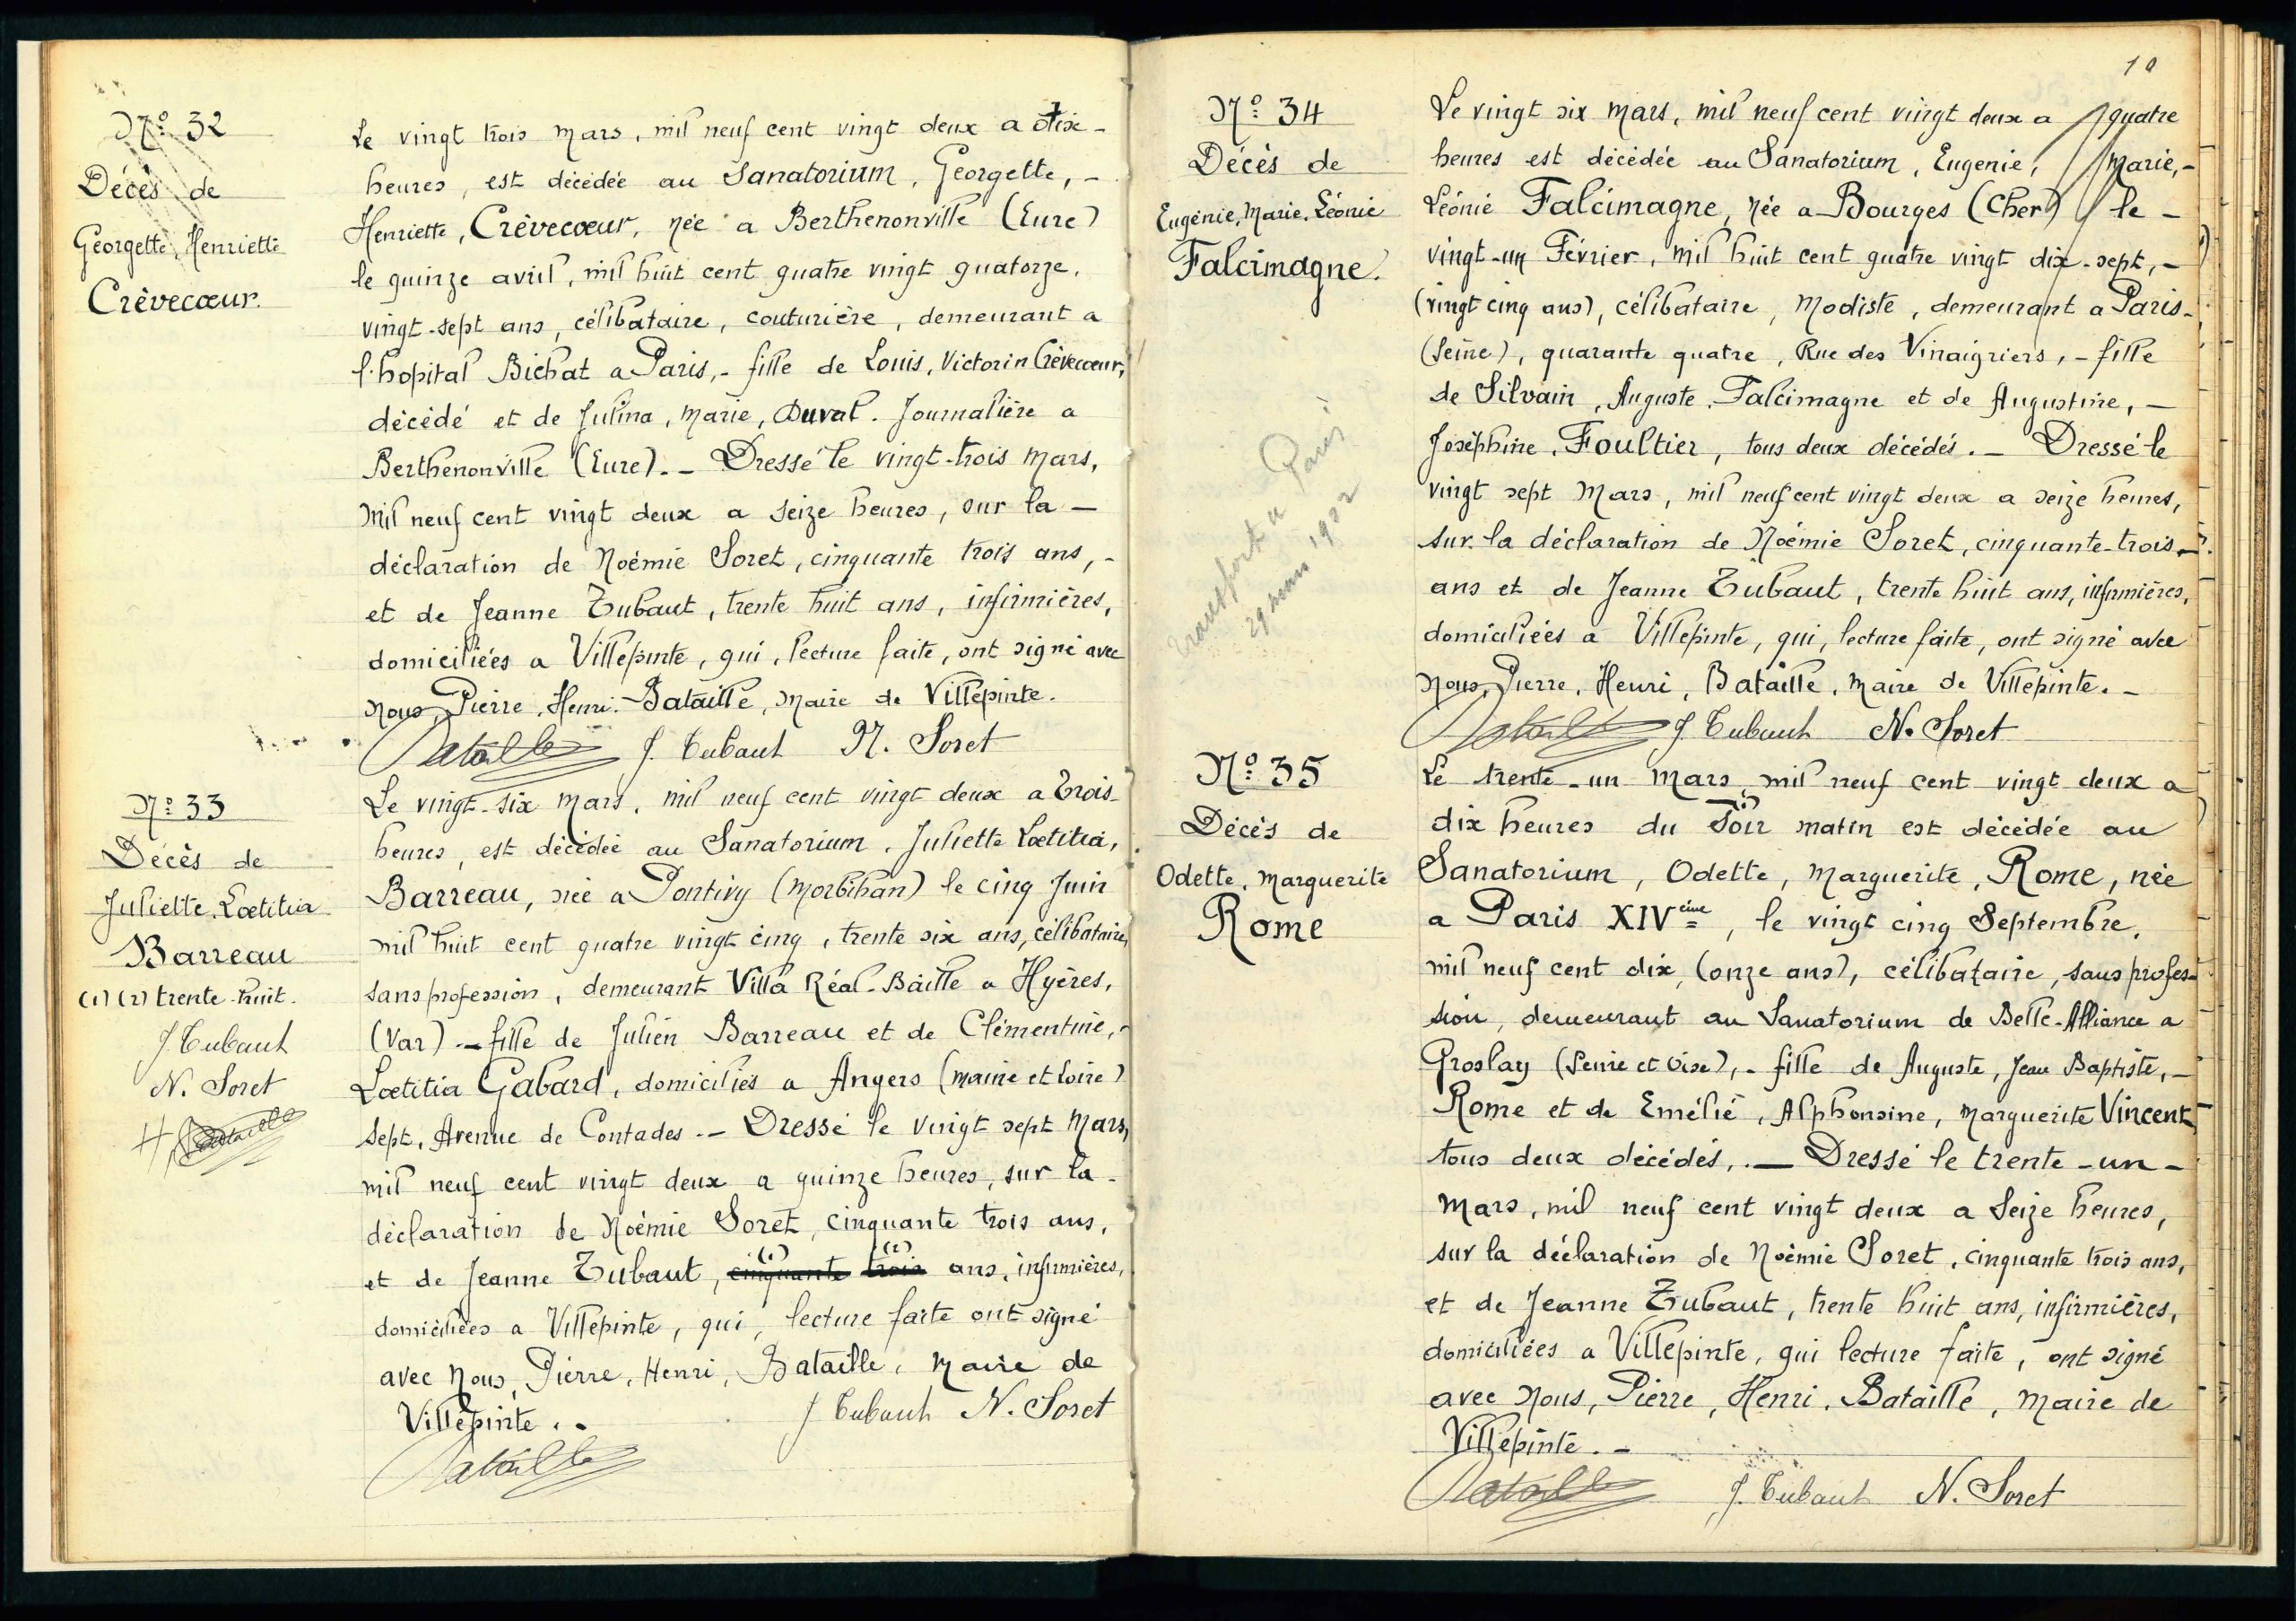 Nº 32
Décès de
Georgette, Henriette
Crèvecœur.
Le vingt trois mars, mil neuf cent vingt deux a dix -
heures, est décédée au Sanatorium, Georgette, -
Henriette, Crèvecœur, née a Berthenonville (Eure)
le quinze avril, mil huit cent quatre vingt quatorze,
vingt-sept ans, célibataire, couturière, demeurant a
l'hopital Bichat a Paris, - fille de Louis, Victorin Crèvecœur,
décédé et de Julina, Marie, Duval. Journalière a
Berthenonville (Eure). - Dressé le vingt-trois mars,
mil neuf cent vingt deux a seize heures, sur la -
déclaration de Noémie Soret, cinquante trois ans, -
et de Jeanne Tubaut, trente huit ans, infirmières,
domiciliées a Villepinte, qui, lecture faite, ont signé avec
nous, Pierre, Henri, Bataille, Maire de Villepinte.
Bataille J. Tubaut N. Soret
Nº 33
Décès de
Juliette, Lœtitia
Barreau
(1) (2) trente-huit.
J. Tubaut
N. Soret
H. Bataille
Le vingt-six mars, mil neuf cent vingt deux a trois-
heures, est décédée au Sanatorium, Juliette Lœtitia,
Barreau, née a Pontivy (Morbihan) le cinq Juin
mil huit cent quatre vingt cinq, trente six ans, célibataire,
sans profession, demeurant Villa Réal-Baille a Hyères,
(Var). - fille de Julien Barreau et de Clémentine, -
Lœtitia Gabard, domiciliés a Angers (Maine et Loire)
sept, Avenue de Contades. - Dressé le vingt sept Mars,
mil neuf cent vingt deux a quinze heures, sur la -
déclaration de Noémie Soret, cinquante trois ans,
(1) (2)
et de Jeanne Tubaut, cinquante trois ans, infirmières,
domiciliées a Villepinte, qui, lecture faite ont signé
avec Nous, Pierre, Henri, Bataille, Maire de
Villepinte. - J. Tubaut N. Soret
Bataille
10
Nº 34
Décès de
Eugénie, Marie, Léonie
Falcimagne.
Transport a Paris
29 mars 1922
Le vingt six Mars, mil neuf cent vingt deux a quatre
heures est décédée au Sanatorium, Eugenie, Marie, -
Léonie Falcimagne, née a Bourges (Cher) le -
vingt-un Février, mil huit cent quatre vingt dix-sept, -
(vingt cinq ans), célibataire, Modiste, demeurant a Paris -
(Seine), quarante quatre, Rue des Vinaigriers, - fille
de Silvain, Auguste, Falcimagne et de Augustine, -
Joséphine, Foultier, tous deux décédés. - Dressé le
vingt sept Mars, mil neuf cent vingt deux a seize heures,
sur la déclaration de Noémie Soret, cinquante-trois -
ans et de Jeanne Tubaut, trente huit ans, infirmières,
domiciliées a Villepinte, qui, lecture faite, ont signé avec
nous, Pierre, Henri, Bataille, Maire de Villepinte. -
Bataille J. Tubaut N. Soret
Nº 35
Décès de
Odette, Marguerite
Rome
Le trente-un Mars, mil neuf cent vingt deux a
dix heures du soir matin est décédée au
Sanatorium, Odette, Marguerite, Rome, née
a Paris XIVème, le vingt cinq Septembre,
mil neuf cent dix, (onze ans), célibataire, sans profes-
sion, demeurant au Sanatorium de Belle-Alliance a
Groslay (Seine et Oise), - fille de Auguste, Jean Baptiste, -
Rome et de Emélié, Alphonsine, Marguerite Vincent
tous deux décédés, . - Dressé le trente-un -
Mars, mil neuf cent vingt deux a Seize heures,
sur la déclaration de Noémie Soret, cinquante trois ans,
et de Jeanne Tubaut, trente huit ans, infirmières,
domiciliées a Villepinte, qui lecture faite, ont signé
avec Nous, Pierre, Henri, Bataille, Maire de
Villepinte. -
Bataille J. Tubaut N. Soret